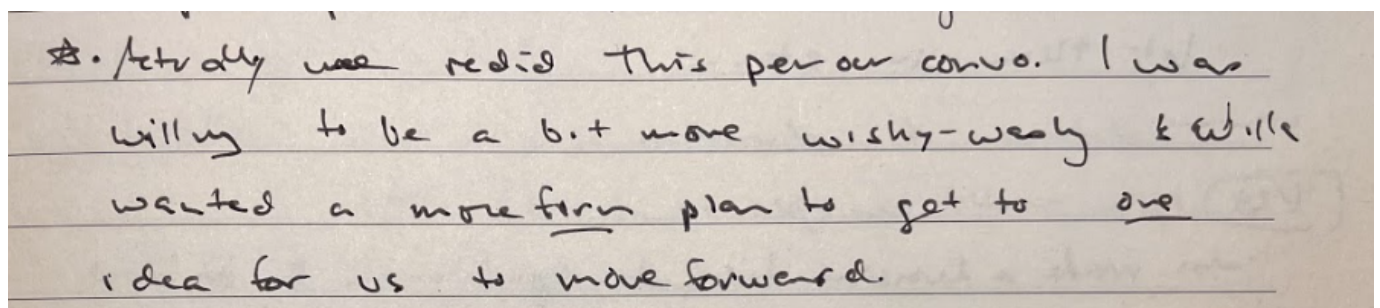 ☆. Actually we redid this per our convo. I was
willing to be a bit more wishy-washy &
wanted a more firm plan to get to one
idea for us to move forward.